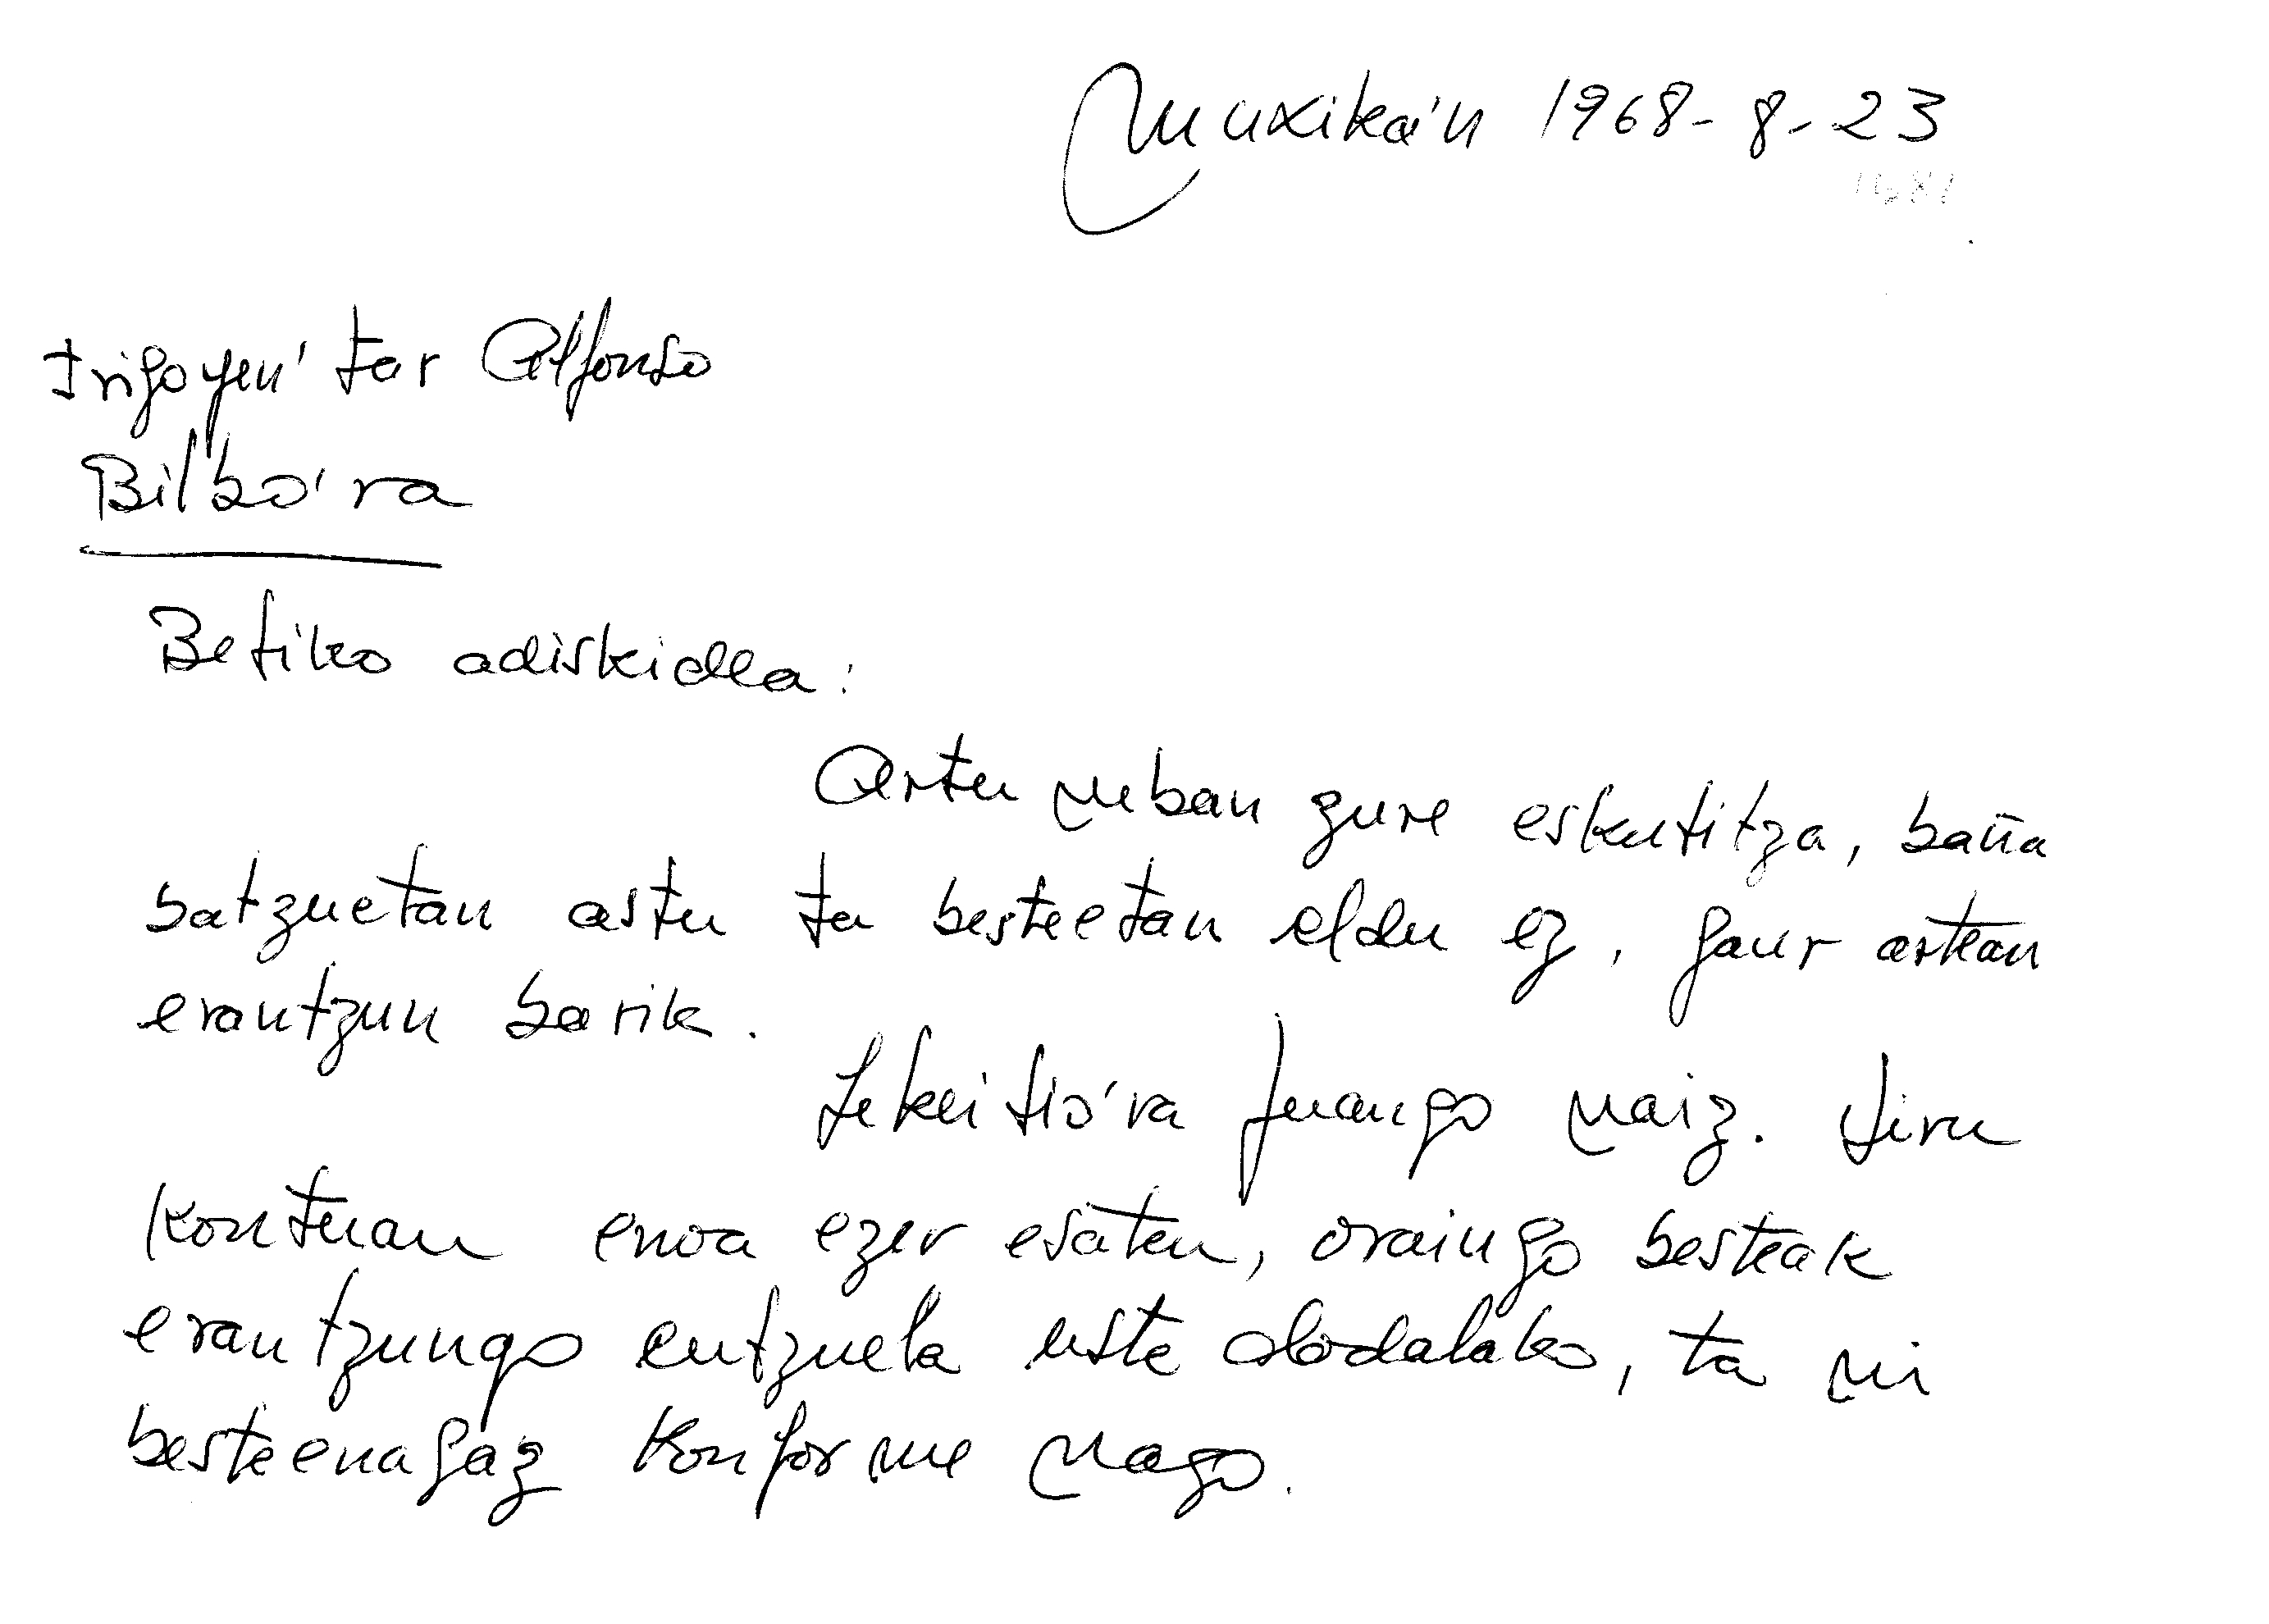 Muxika'n 1968-8-23
Irigoyen'tar Alfonso
Bilbo'ra
Betiko adiskidea:
Artu neban zure eskutitza, baña
batzuetan astu ta besteetan eldu ez, gaur artean
erantzun barik.
Lekeitio'ra juango naiz. Diru
kontuan enoa ezer esaten, oraingo besteak
erantzungo eutzuela uste dodalako, ta ni
besteenagaz konforme nago.